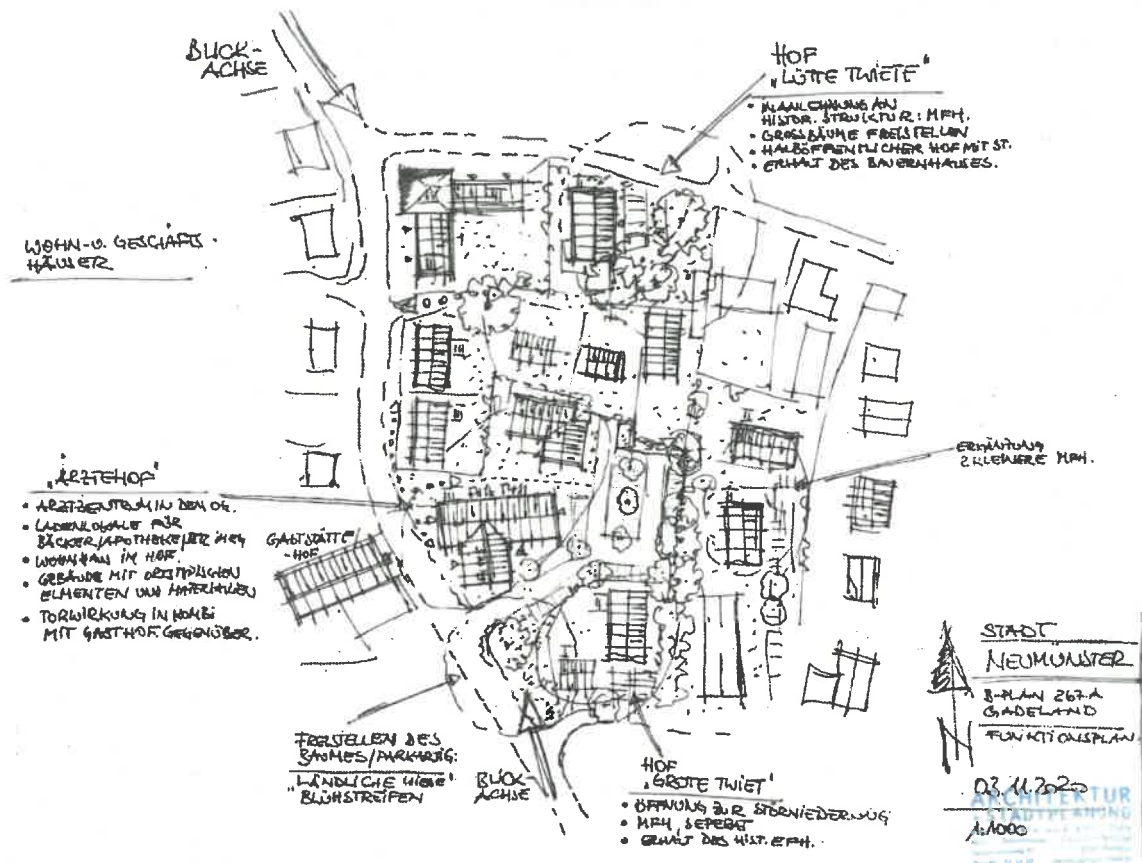 BLICK-
ACHSE
HOF
"LÜTTE TWIETE"
• IN ANLEHNUNG AN
HISTOR. STRUKTUR: MFH.
• GROSSBÄUME FREISTELLEN
• HALBÖFFENTLICHER HOF MIT ST.
• ERHALT DES BAUERNHAUSES.
WOHN- U. GESCHÄFTS-
HÄUSER
"ÄRZTEHOF"
• ARZTZENTRUM IN DEM OG.
• LADENLOKALE FÜR
BÄCKER/APOTHEKE/ETC IM EG
• WOHNBAU IM HOF.
• GEBÄUDE MIT ORTSTYPISCHEN
ELMENTEN UND MATERIALIEN
• TORWIRKUNG IN KOMBI
MIT GASTHOF GEGENÜBER.
GASTSTÄTTE
-HOF
ERGÄNZUNG
2 KLEINERE MFH.
FREISTELLEN DES
BAUMES/PARKARTIG:
"LÄNDLICHE WIESE"
BLÜHSTREIFEN
BLICK-
ACHSE
HOF
"GROTE TWIET"
• ÖFFNUNG ZUR STÖRNIEDERUNG
• MFH, SEPERAT
• ERHALT DES HIST. EFH.
STADT
NEUMÜNSTER
B-PLAN 267.A
GADELAND
FUNKTIONSPLAN
N
03.11.2020
ARCHITEKTUR
STADTPLANUNG
1:1000